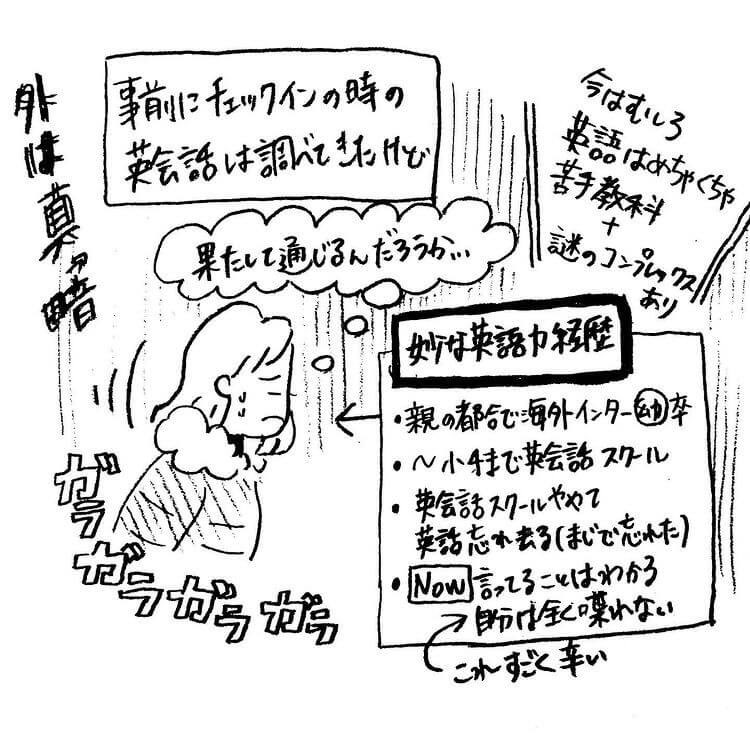 外は真っ暗
事前にチェックインの時の
英会話は調べてきたけど
今はむしろ
英語はめちゃくちゃ
苦手教科
+
謎のコンプレックス
あり
果たして通じるんだろうか…
妙な英語力経歴
・親の都合で海外インター幼卒
・〜小4まで英会話スクール
・英会話スクールやめて
英話忘れ去る(まじで忘れた)
・Now 言ってることはわかる
自分は全く喋れない
これすごく辛い
ガラガラガラガラ